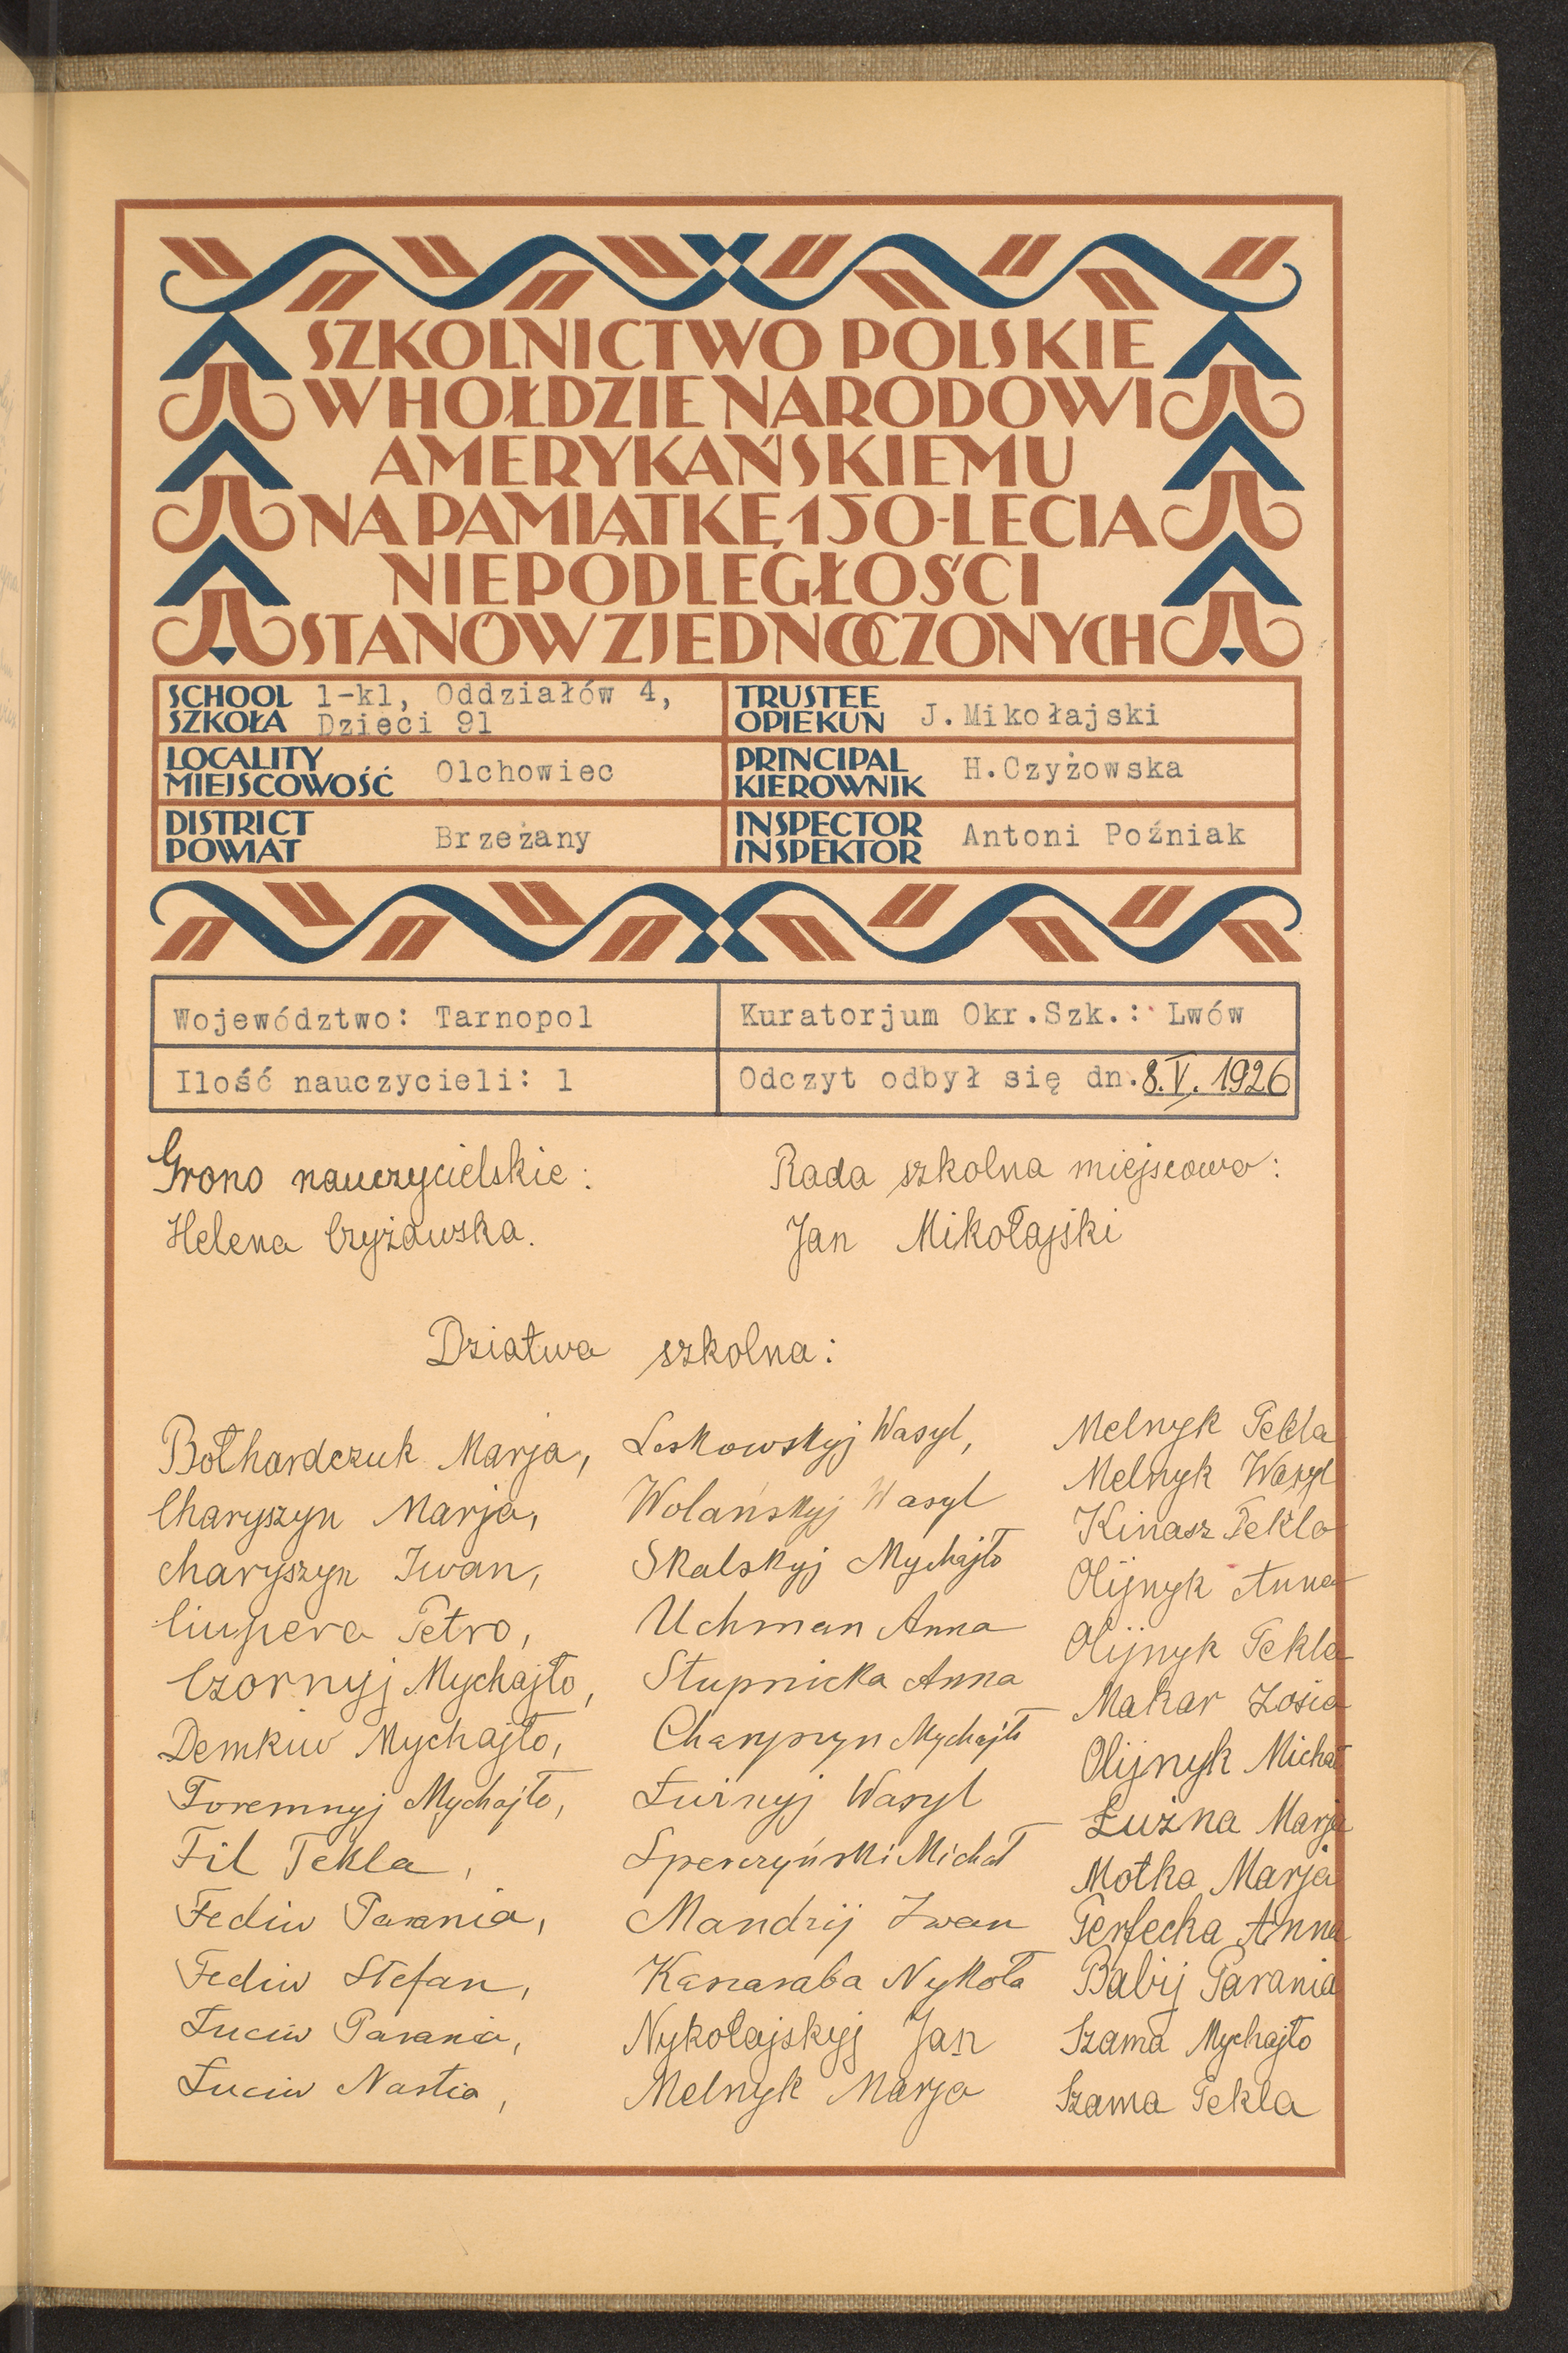 SZKOLNICTWO POLSKIE
W HOŁDZIE NARODOWI
AMERYKAŃSKIEMU
NA PAMIĄTKĘ 150-LECIA
NIEPODLEGŁOŚCI
STANÓW ZJEDNOCZONYCH
SCHOOL SZKOŁA 1-kl, Oddziałów 4, Dzieci 91
TRUSTEE OPIEKUN J.Mikołajski
LOCALITY MIEJSCOWOŚĆ Olchowiec
PRINCIPAL KIEROWNIK H.Czyżowska
DISTRICT POWIAT Brzeżany
INSPECTOR INSPEKTOR Antoni Poźniak
Województwo: Tarnopol
Kuratorjum Okr.Szk.: Lwów
Ilość nauczycieli: 1
Odczyt odbył się dn. 8.V.1926
Grono nauczycielskie:
Helena Czyżowska.
Rada szkolna miejscowa:
Jan Mikołajski
Dziatwa szkolna:
Bołhardczuk Marja,
Charyszyn Marja,
Charyszyn Iwan,
Ciupera Petro,
Czornyj Mychajło,
Demkiw Mychajło,
Foremnyj Mychajło,
Fil Tekla,
Fediw Parania,
Fediw Stefan,
Łuciw Parania,
Łuciw Nastia,
Leskowskyj Wasyl,
Wolańskyj Wasyl
Skalskyj Mychajło
Uchman Anna
Stupnicka Anna
Charyszyn Mychajło
Łużnyj Wasyl
Michał
Mandzij Iwan
Kanaraba Nykoła
Nykołajskyj Jan
Melnyk Marja
Melnyk Tekla
Melnyk Wasyl
Kinasz Tekla
Olijnyk Anna
Olijnyk Tekla
Makar Zosia
Olijnyk Michał
Łużna Marja
Motka Marja
Perfecka Anna
Babij Parania
Szama Mychajło
Szama Tekla